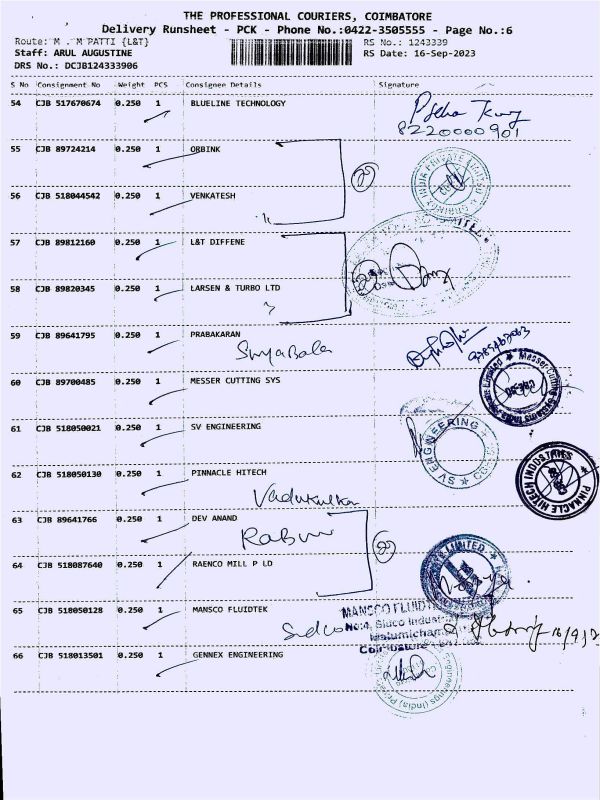 THE PROFESSIONAL COURIERS, COIMBATORE
Delivery Runsheet - PCK - Phone No.:0422-3505555 - Page No.:6
Route: M . M PATTI {L&T}
RS No.: 1243339
Staff: ARUL AUGUSTINE
RS Date: 16-Sep-2023
DRS No.: DCJB124333906
S No Consignment No Weight PCS Consignee Details Signature
54 CJB 517670674 0.250 1 BLUELINE TECHNOLOGY
8220000901
55 CJB 89724214 0.250 1 ORBINK
56 CJB 518044542 0.250 1 VENKATESH
57 CJB 89812160 0.250 1 L&T DIFFENE
58 CJB 89820345 0.250 1 LARSEN & TURBO LTD
59 CJB 89641795 0.250 1 PRABAKARAN
SuryaBala
60 CJB 89700485 0.250 1 MESSER CUTTING SYS
61 CJB 518050021 0.250 1 SV ENGINEERING
SV ENGINEERING
62 CJB 518050130 0.250 1 PINNACLE HITECH
PINNACLE HITECH INDUSTRIES
63 CJB 89641766 0.250 1 DEV ANAND
64 CJB 518087640 0.250 1 RAENCO MILL P LD
65 CJB 518050128 0.250 1 MANSCO FLUIDTEK
MANSCO FLUIDT
No:4, Sidco Industri
Malumicham
Coimbatore
66 CJB 518013501 0.250 1 GENNEX ENGINEERING